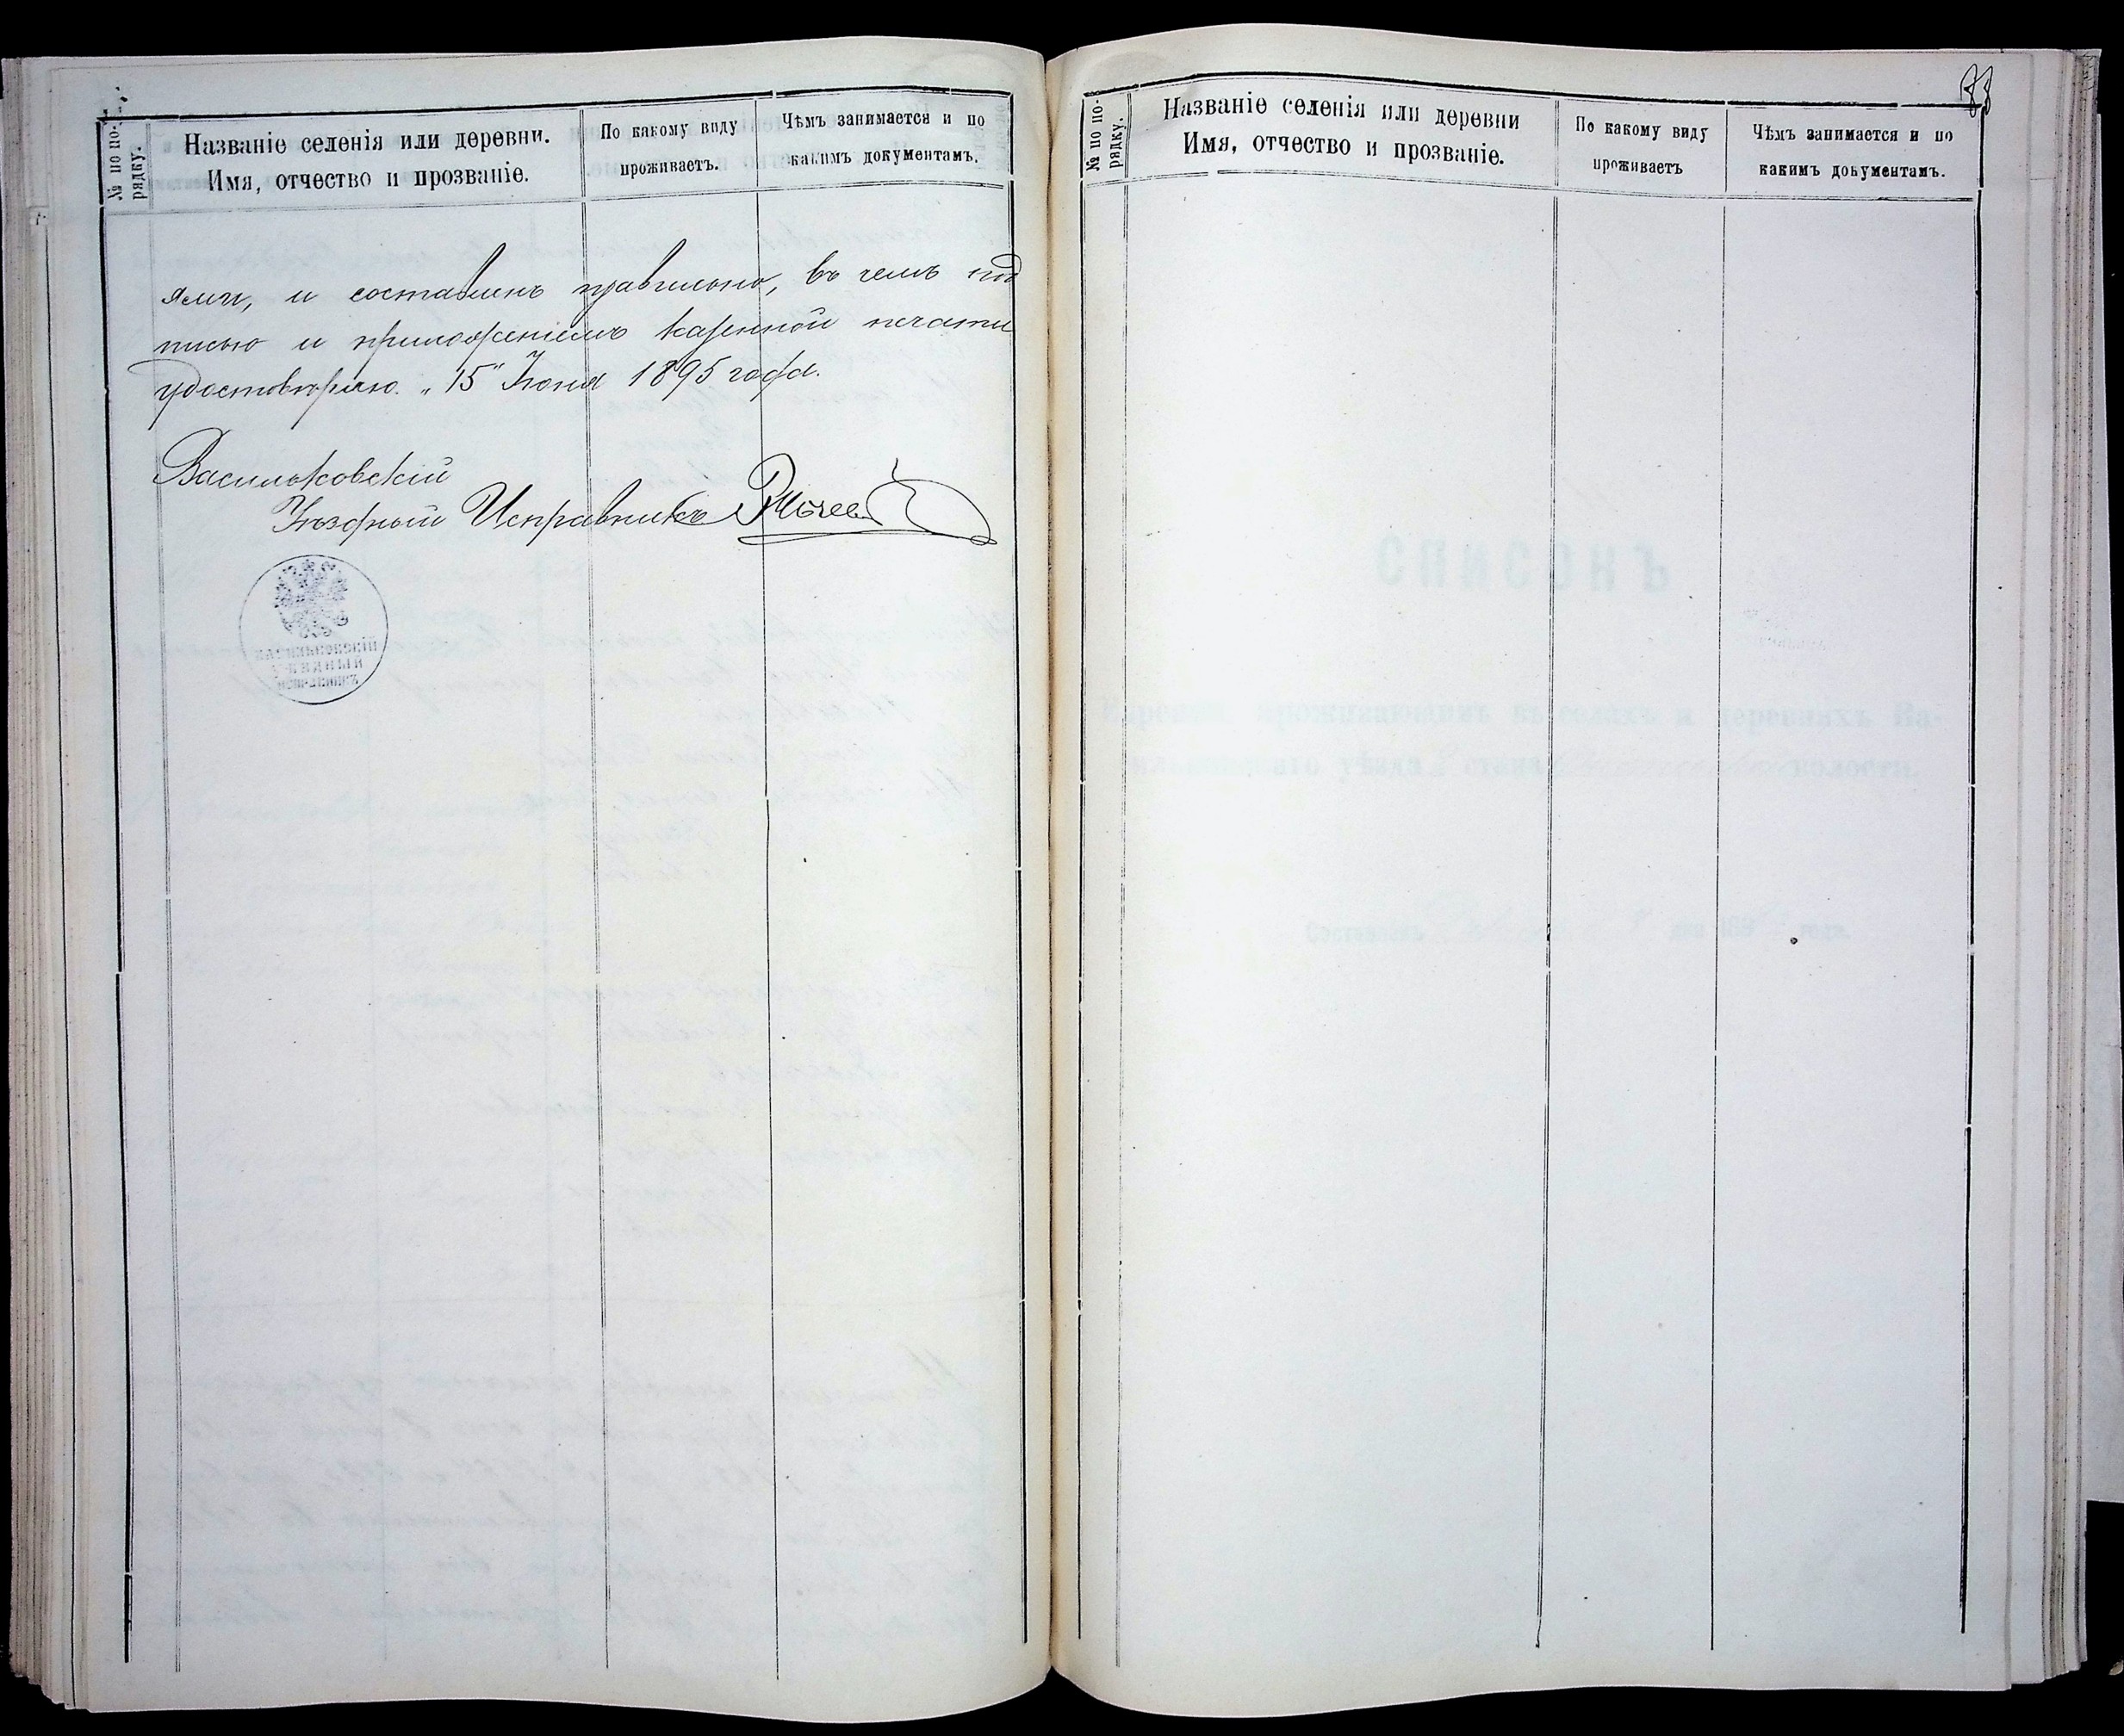 № по по-
рядку.
Названіе селенія или деревни.
Имя, отчество и прозваніе.
По какому виду
проживаетъ.
Чѣмъ занимается и по
какимъ документамъ.
ями, и составленъ правильно, въ чемъ под
писью и приложеніемъ казенной печати
удостовѣряю. „15" Іюня 1895 года.
Васильковскій
Уѣздный Исправникъ
ВАСИЛЬКОВСКІЙ
УѢЗДНЫЙ
ИСПРАВНИКЪ
83
№ по по-
рядку.
Названіе селенія или деревни
Имя, отчество и прозваніе.
По какому виду
проживаетъ
Чѣмъ занимается и по
какимъ документамъ.
СПИСОКЪ